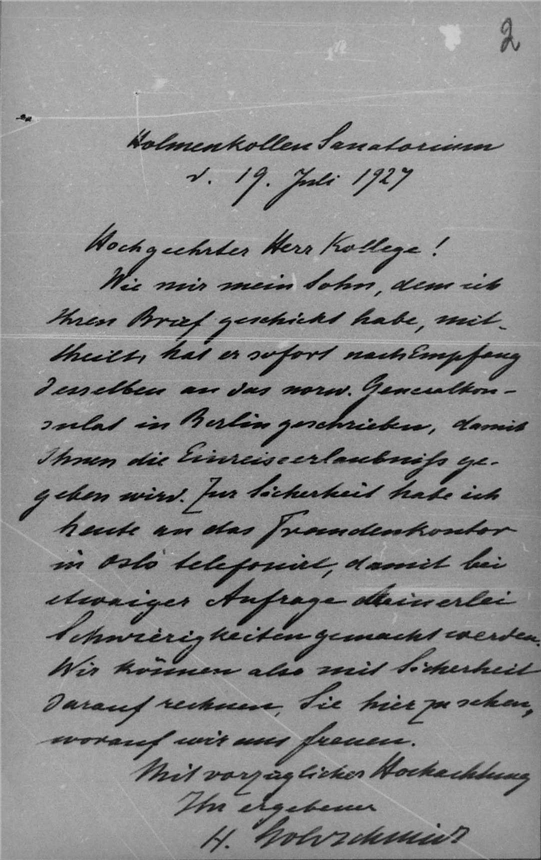 2
Holmenkollen Sanatorium
d. 19. Juli 1927
Hochgeehrter Herr Kollege!
Wie mir mein Sohn, dem ich
Ihren Brief geschickt habe, mit-
theilt, hat er sofort nach Empfang
desselben an das norw. Generalkon-
sulat in Berlin geschrieben, damit
Ihnen die Einreiseerlaubniss ge-
geben wird. Zur Sicherheit habe ich
heute an das Fremdenkontor
in Oslo telefonirt, damit bei
etwaiger Anfrage keinerlei
Schwierigkeiten gemacht werden.
Wir können also mit Sicherheit
darauf rechnen, Sie hier zu sehen,
worauf wir uns freuen.
Mit vorzüglicher Hochachtung
Ihr ergebener
H. Goldschmidt